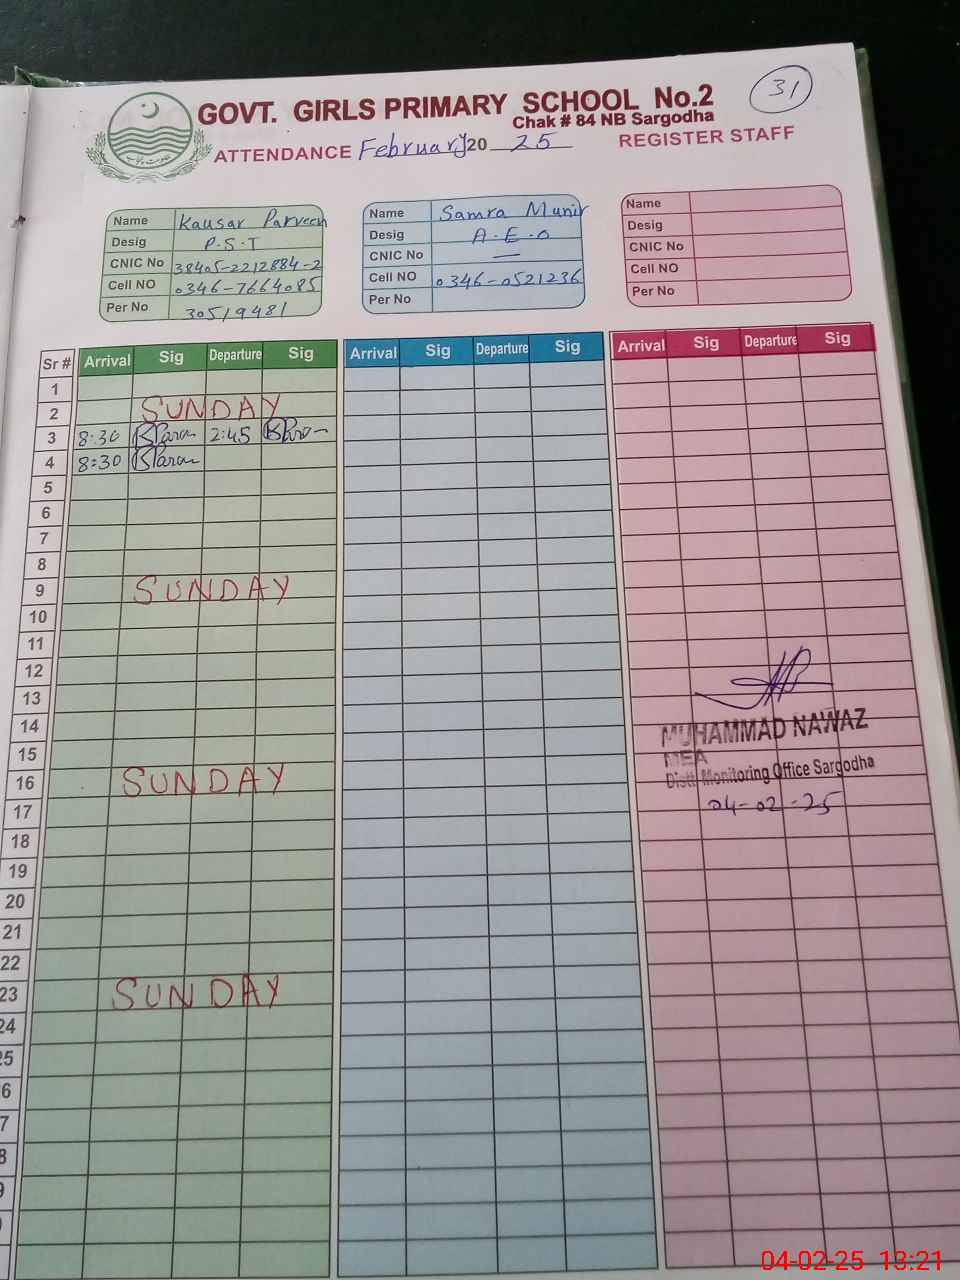 31
GOVT. GIRLS PRIMARY SCHOOL No.2
Chak # 84 NB Sargodha
ATTENDANCE February 2025 REGISTER STAFF
حکومت پنجاب
Name Kausar Parveen
Desig P.S.T
CNIC No 38405-2212884-2
Cell NO 0346-7664085
Per No 30519481
Name Samra Munir
Desig A.E.O
CNIC No —
Cell NO 0346-0521236
Per No
Name
Desig
CNIC No
Cell NO
Per No
Sr # Arrival Sig Departure Sig Arrival Sig Departure Sig Arrival Sig Departure Sig
1
2 SUNDAY
3 8:30 2:45
4 8:30
5
6
7
8
9 SUNDAY
10
11
12
13
14
15
16 SUNDAY
17
18
19
20
21
22
23 SUNDAY
24
25
6
7
8
9
MUHAMMAD NAWAZ
MEA
Distt Monitoring Office Sargodha
04-02-25
04-02-25 13:21